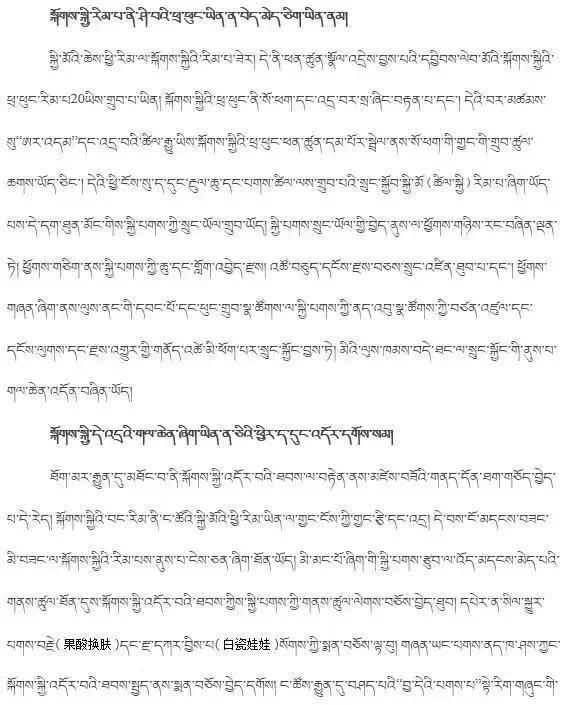 སྐོགས་ཀྱི་རིམ་པ་ནི་ཤི་བའི་ཕྲ་ཕུང་ཡིན་ན་པེད་མེད་ཅིག་ཡིན་ནམ།
ཀྱི་མོའི་ཆེས་ཕྱི་རིམ་ལ་སྐོགས་ཀྱིའི་རིམ་པ་ཟེར། དེ་ནི་ཕན་ཚུན་སྣོལ་འདྲེས་བྱས་པའི་དབྱིབས་ལེབ་མོའི་སྐོགས་ཀྱིའི་
ཕྲ་ཕུང་རིམ་པ20ཡིས་གྲུབ་པ་ཡིན། སྐོགས་ཀྱིའི་ཕྲ་ཕུང་ནི་སོ་ཕག་དང་འདྲ་བར་སྲ་ཞིང་བརྟན་པ་དང་། དེའི་བར་མཚམས་
སུ“ཨར་འདམ”དང་འདྲ་བའི་ཚིལ་རྒྱུ་ཡིས་སྐོགས་ཀྱིའི་ཕྲ་ཕུང་ཕན་ཚུན་དམ་པོར་སྦྲེལ་ནས་སོ་ཕག་གི་གྱང་གི་གྲུབ་ཚུལ་
ཆགས་ཡོད་ཅིང་། དེའི་ཕྱི་ངོས་སུ་ད་དུང་རྔུལ་ཆུ་དང་པགས་ཚིལ་ལས་གྲུབ་པའི་སྲུང་སྐྱོབ་སྐྱི་མོ(ཚིལ་སྐྱི)རིམ་པ་ཞིག་ཡོད་
པས་དེ་དག་ཐུན་མོང་གིས་སྐྱི་པགས་ཀྱི་སྲུང་ཡོལ་གྲུབ་ཡོད། སྐྱི་པགས་སྲུང་ཡོལ་གྱི་བྱེད་ནུས་ལ་ཕྱོགས་གཉིས་རང་བཞིན་ལྡན་
ཏེ། ཕྱོགས་གཅིག་ནས་སྐྱི་པགས་ཀྱི་ཆུ་དང་གློག་འབྱེད་རྫས། འཚོ་བཅུད་དངོས་རྫས་བཅས་སྲུང་འཛིན་ཐུབ་པ་དང་། ཕྱོགས་
གཞན་ཞིག་ནས་ལུས་ནང་གི་དབང་པོ་དང་ཕུང་གྲུབ་སྣ་ཚོགས་ལ་སྐྱི་པགས་ཀྱི་ནད་འབུ་སྣ་ཚོགས་ཀྱི་བཙན་འཛུལ་དང་
དངོས་ལུགས་དང་རྫས་འགྱུར་གྱི་གནོད་འཚེ་མི་ཕོག་པར་སྲུང་སྐྱོང་བྱས་ཏེ། མིའི་ལུས་ཁམས་བདེ་ཐང་ལ་སྲུང་སྐྱོང་གི་ནུས་པ་
གལ་ཆེན་འདོན་བཞིན་ཡོད།
སྐོགས་ཀྱི་དེ་འདྲའི་གལ་ཆེན་ཞིག་ཡིན་ན་ཅིའི་ཕྱིར་ད་དུང་འདོར་དགོས་སམ།
ཐོག་མར་རྒྱུན་དུ་མཐོང་བ་ནི་སྐོགས་ཀྱི་འདོར་བའི་ཐབས་ལ་བརྟེན་ནས་མཛེས་བཟོའི་གནད་དོན་ཐག་གཅོད་བྱེད་
པ་དེ་རེད། སྐོགས་ཀྱིའི་བང་རིམ་ནི་ང་ཚོའི་སྐྱི་མོའི་ཕྱི་རིམ་ཡིན་ལ་གྱང་ངོས་ཀྱི་གྱང་རྩི་དང་འདྲ། དེ་བས་ངོ་མདངས་བཟང་
མི་བཟང་ལ་སྐོགས་ཀྱིའི་རིམ་པས་ནུས་པ་ངེས་ཅན་ཞིག་ཐོན་ཡོད། མི་མང་པོ་ཞིག་གི་སྐྱི་པགས་རྩུབ་ལ་འོད་མདངས་མེད་པའི་
གནས་ཚུལ་ཐོན་དུས་སྐོགས་ཀྱི་འདོར་བའི་ཐབས་ཀྱིས་སྐྱི་པགས་ཀྱི་གནས་ཚུལ་ལེགས་བཅོས་བྱེད་ཐུབ། དཔེར་ན་སིལ་སྐྱུར་
པགས་བརྗེ(果酸换肤)དང་རྫ་དཀར་བྱིས་པ(白瓷娃娃)སོགས་ཀྱི་སྨན་བཅོས་ལྟ་བུ། གཞན་ཡང་པགས་ནད་ཁ་ཤས་ཀྱང་
སྐོགས་ཀྱི་འདོར་བའི་ཐབས་སྤྱད་ནས་སྨན་བཅོས་བྱེད་དགོས། ང་ཚོས་རྒྱུན་དུ་བཤད་པའི“བྱ་དེའི་པགས་པ”སྟེ་རིག་གཞུང་གི་